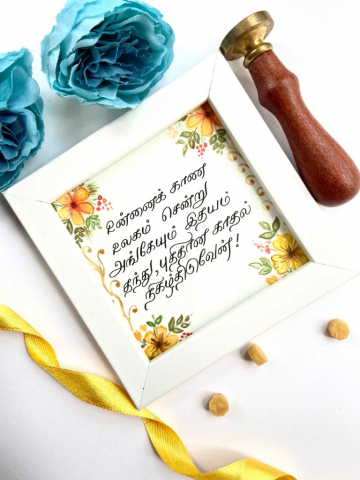 உன்னைக் காண
உலகம் சென்று
அங்கேயும் இதயம்
தந்து, புத்தான காதல்
நிகழ்திடுவேன்!